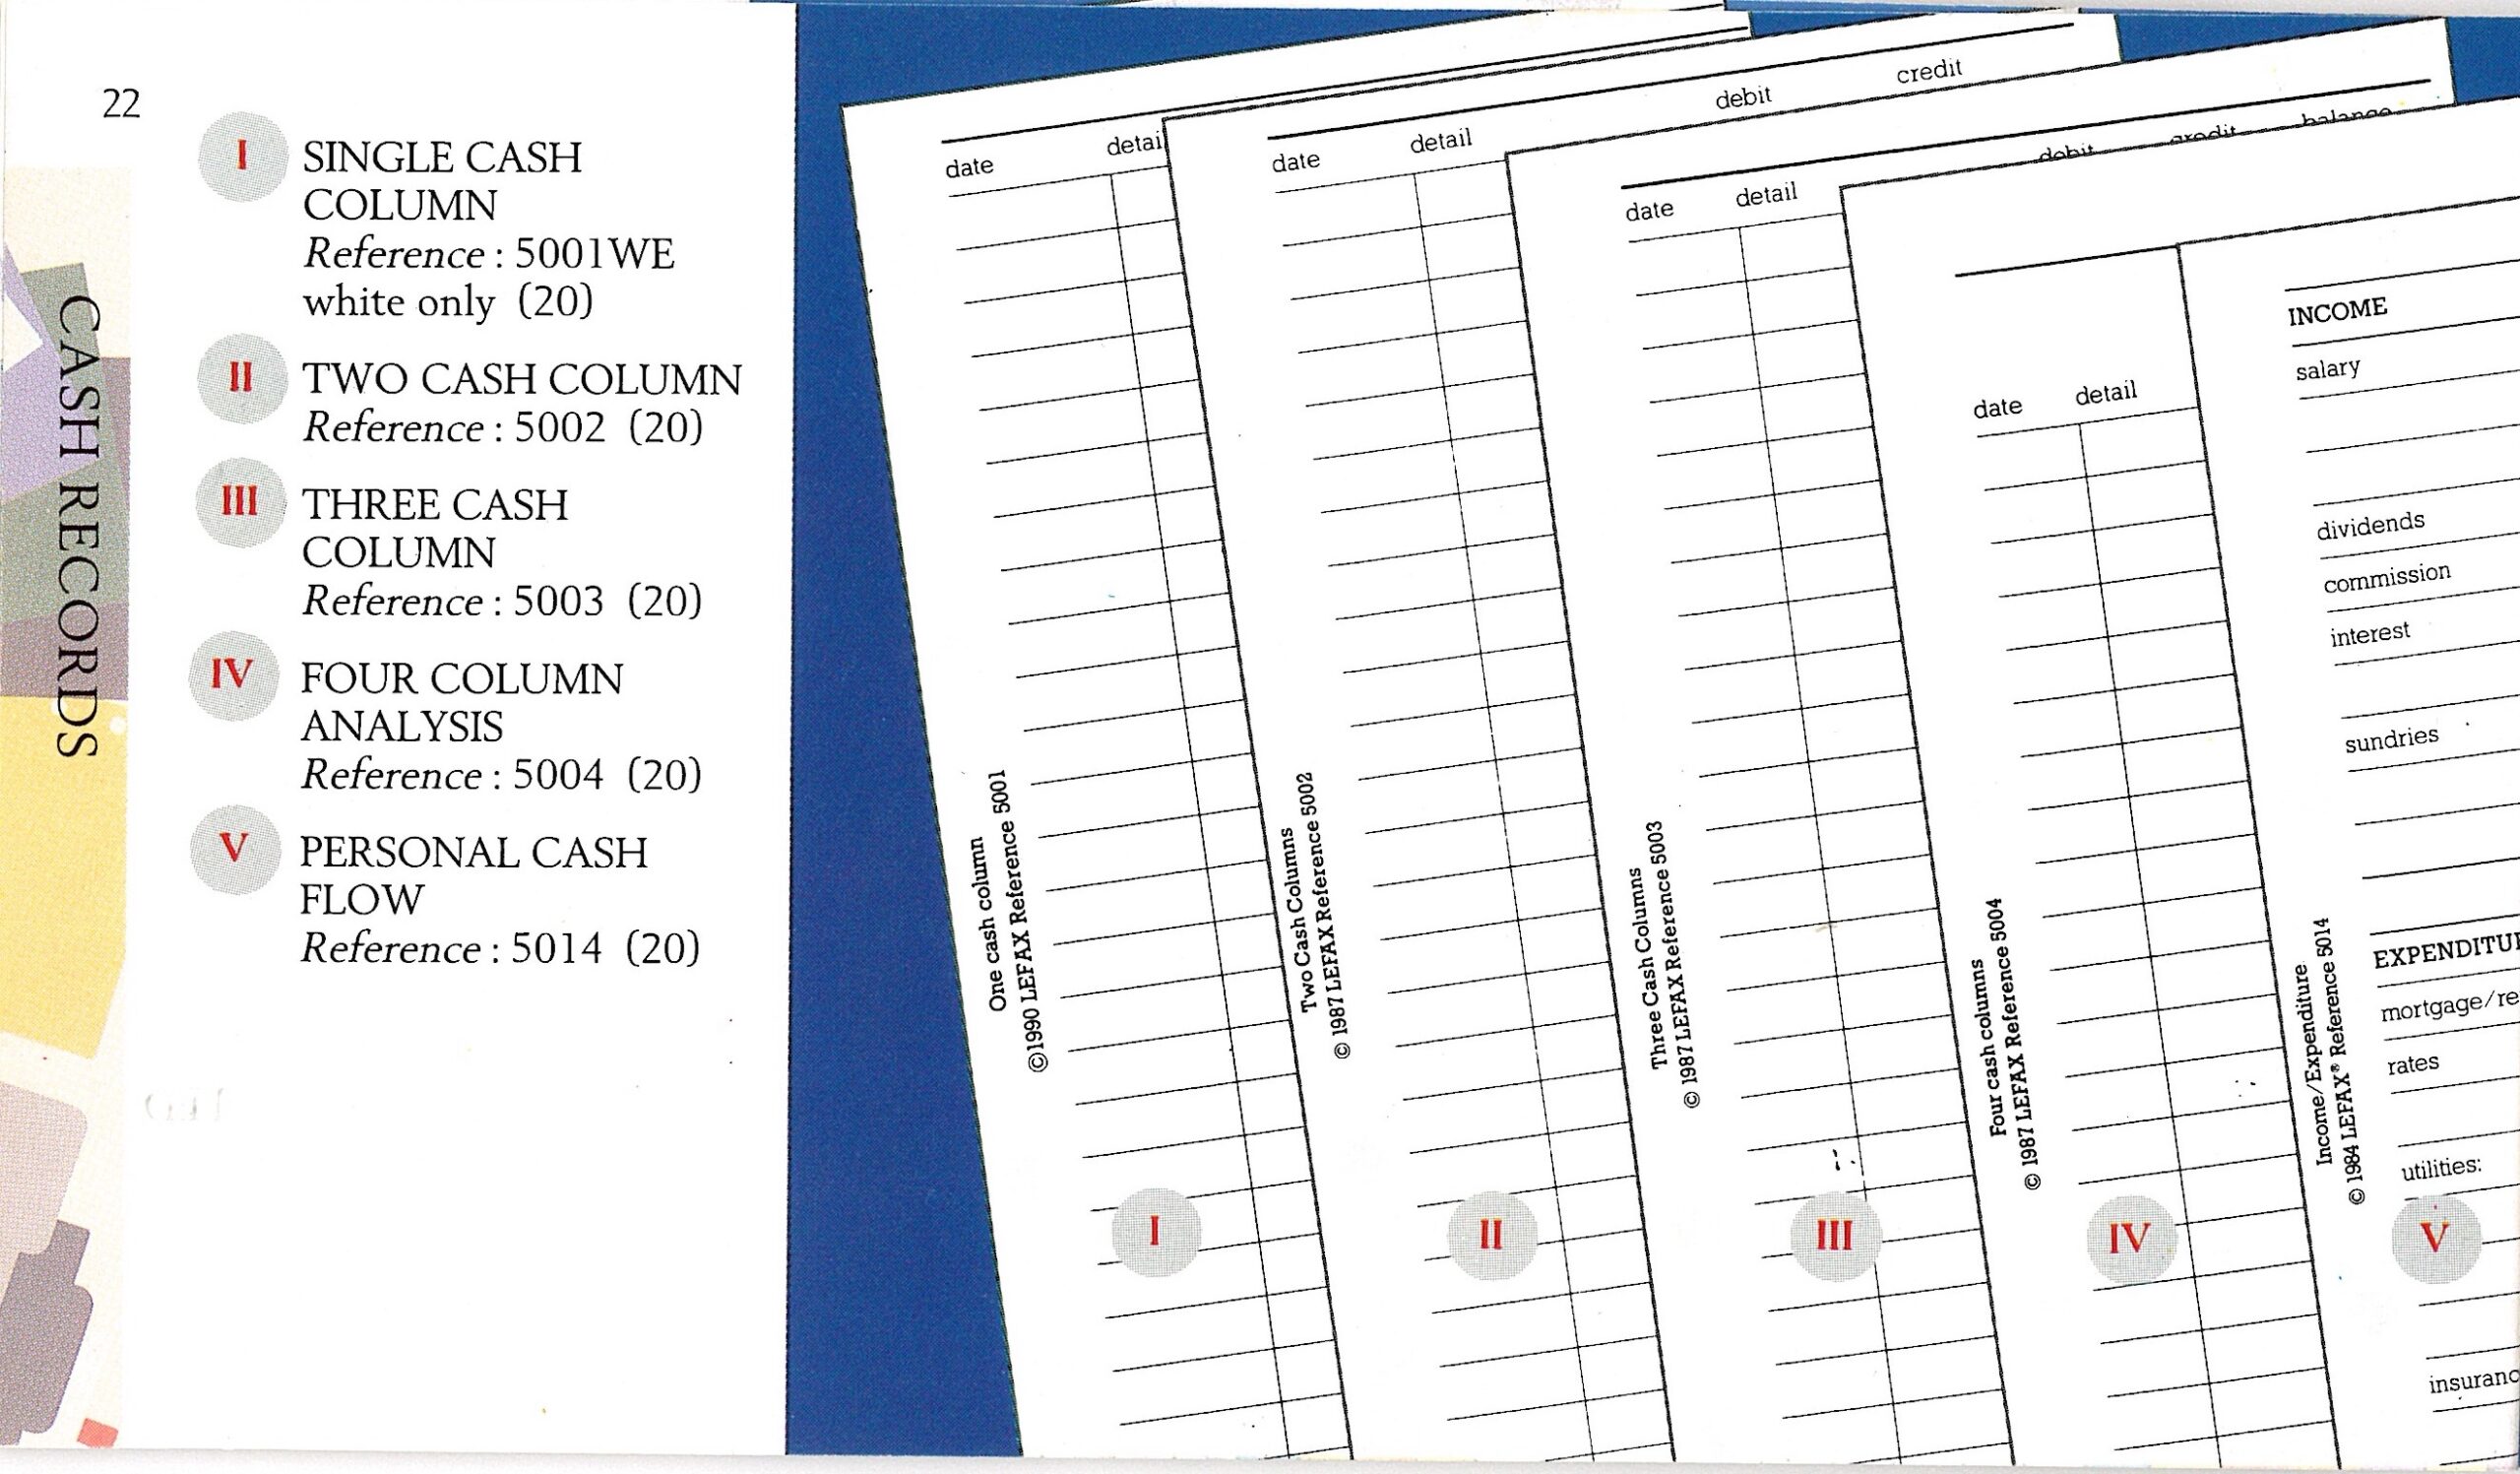 22
CASH RECORDS
I
SINGLE CASH
COLUMN
Reference : 5001WE
white only (20)
II
TWO CASH COLUMN
Reference : 5002 (20)
III
THREE CASH
COLUMN
Reference : 5003 (20)
IV
FOUR COLUMN
ANALYSIS
Reference : 5004 (20)
V
PERSONAL CASH
FLOW
Reference : 5014 (20)
date detail
One cash column
©1990 LEFAX Reference 5001
I
date detail debit credit
Two Cash Columns
© 1987 LEFAX Reference 5002
II
date detail debit credit balance
Three Cash Columns
© 1987 LEFAX Reference 5003
III
date detail
Four cash columns
© 1987 LEFAX Reference 5004
IV
INCOME
salary
dividends
commission
interest
sundries
EXPENDITU
mortgage/re
rates
utilities:
insuranc
Income/Expenditure
© 1984 LEFAX® Reference 5014
V